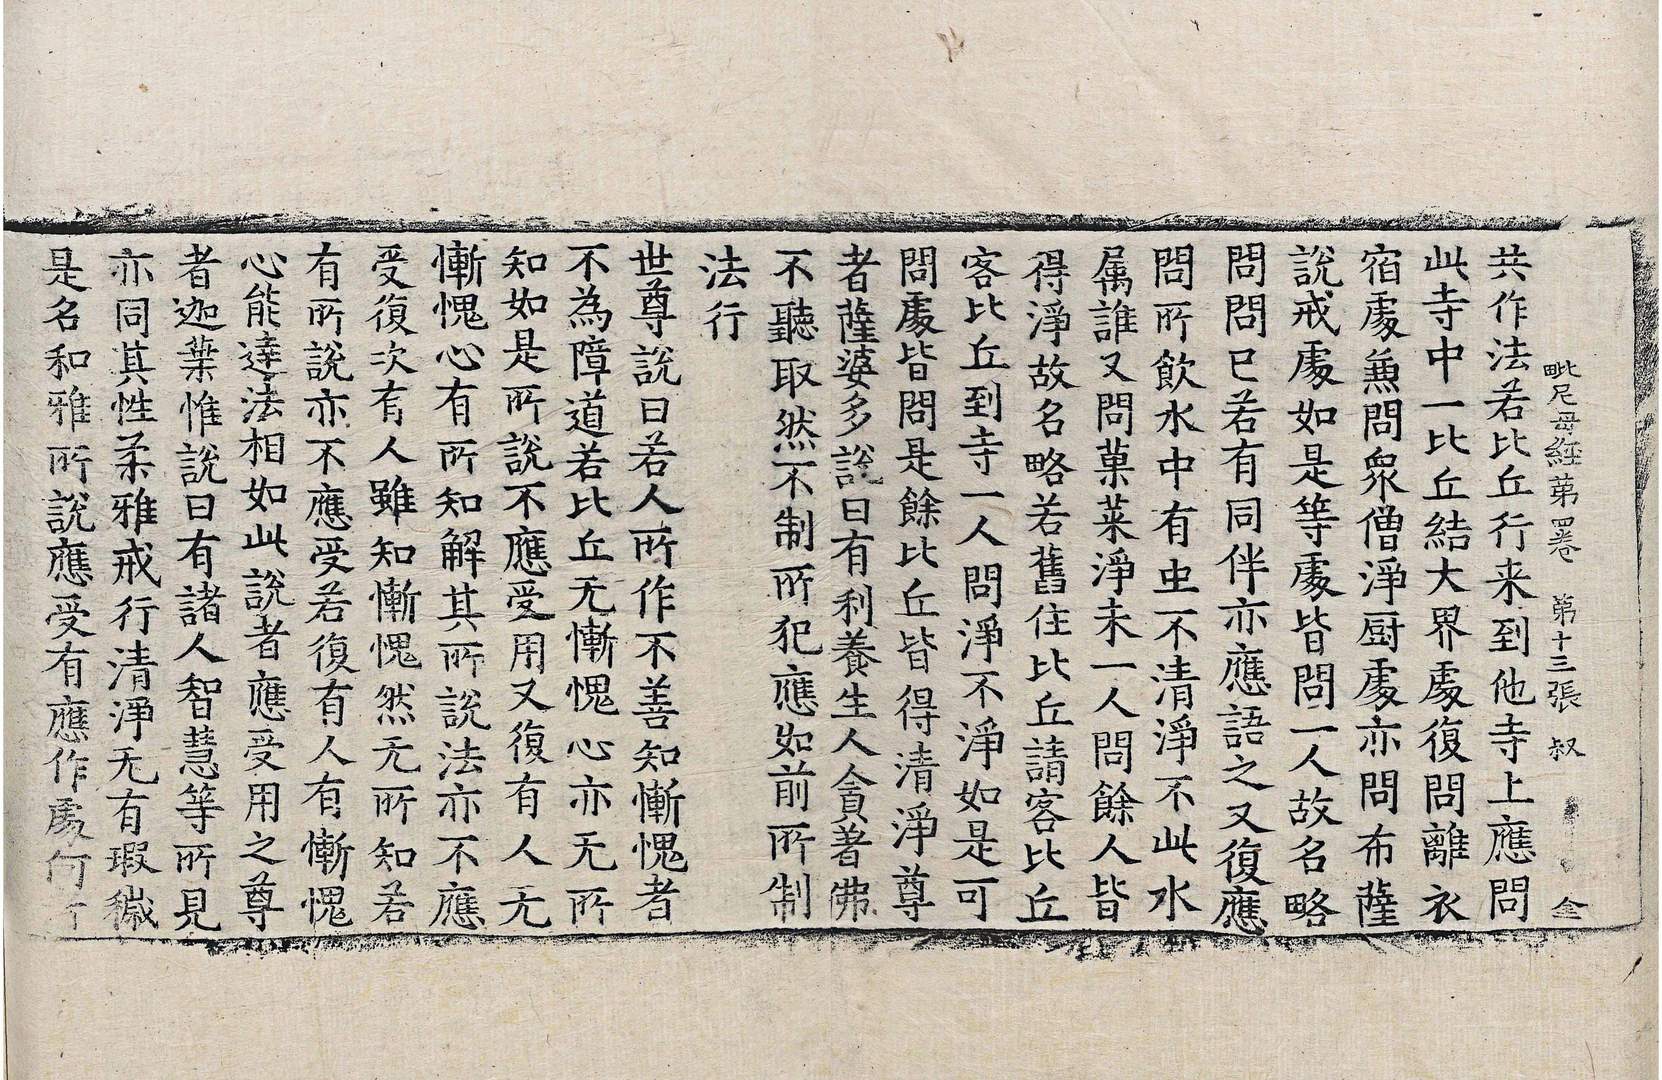 毗尼母經苐四卷 第十三張 叔 金
共作法若比丘行来到他寺上應問
此寺中一比丘結大界處復問離衣
宿處無問衆僧淨厨處亦問布薩
說戒處如是等處皆問一人故名略
問問已若有同伴亦應語之又復應
問所飲水中有虫不清淨不此水
属誰又問菓菜淨未一人問餘人皆
得淨故名略若舊住比丘請客比丘
客比丘到寺一人問淨不淨如是可
問處皆問是餘比丘皆得清淨尊
者薩婆多說曰有利養生人貪著佛
不聽取然不制所犯應如前所制
法行
世尊說曰若人所作不善知慚愧者
不為障道若比丘无慚愧心亦无所
知如是所說不應受用又復有人无
慚愧心有所知解其所說法亦不應
受復次有人雖知慚愧然无所知若
有所說亦不應受若復有人有慚愧
心能達法相如此說者應受用之尊
者迦葉惟說曰有諸人智慧等所見
亦同其性柔雅戒行清淨无有瑕穢
是名和雅所說應受有應作處何